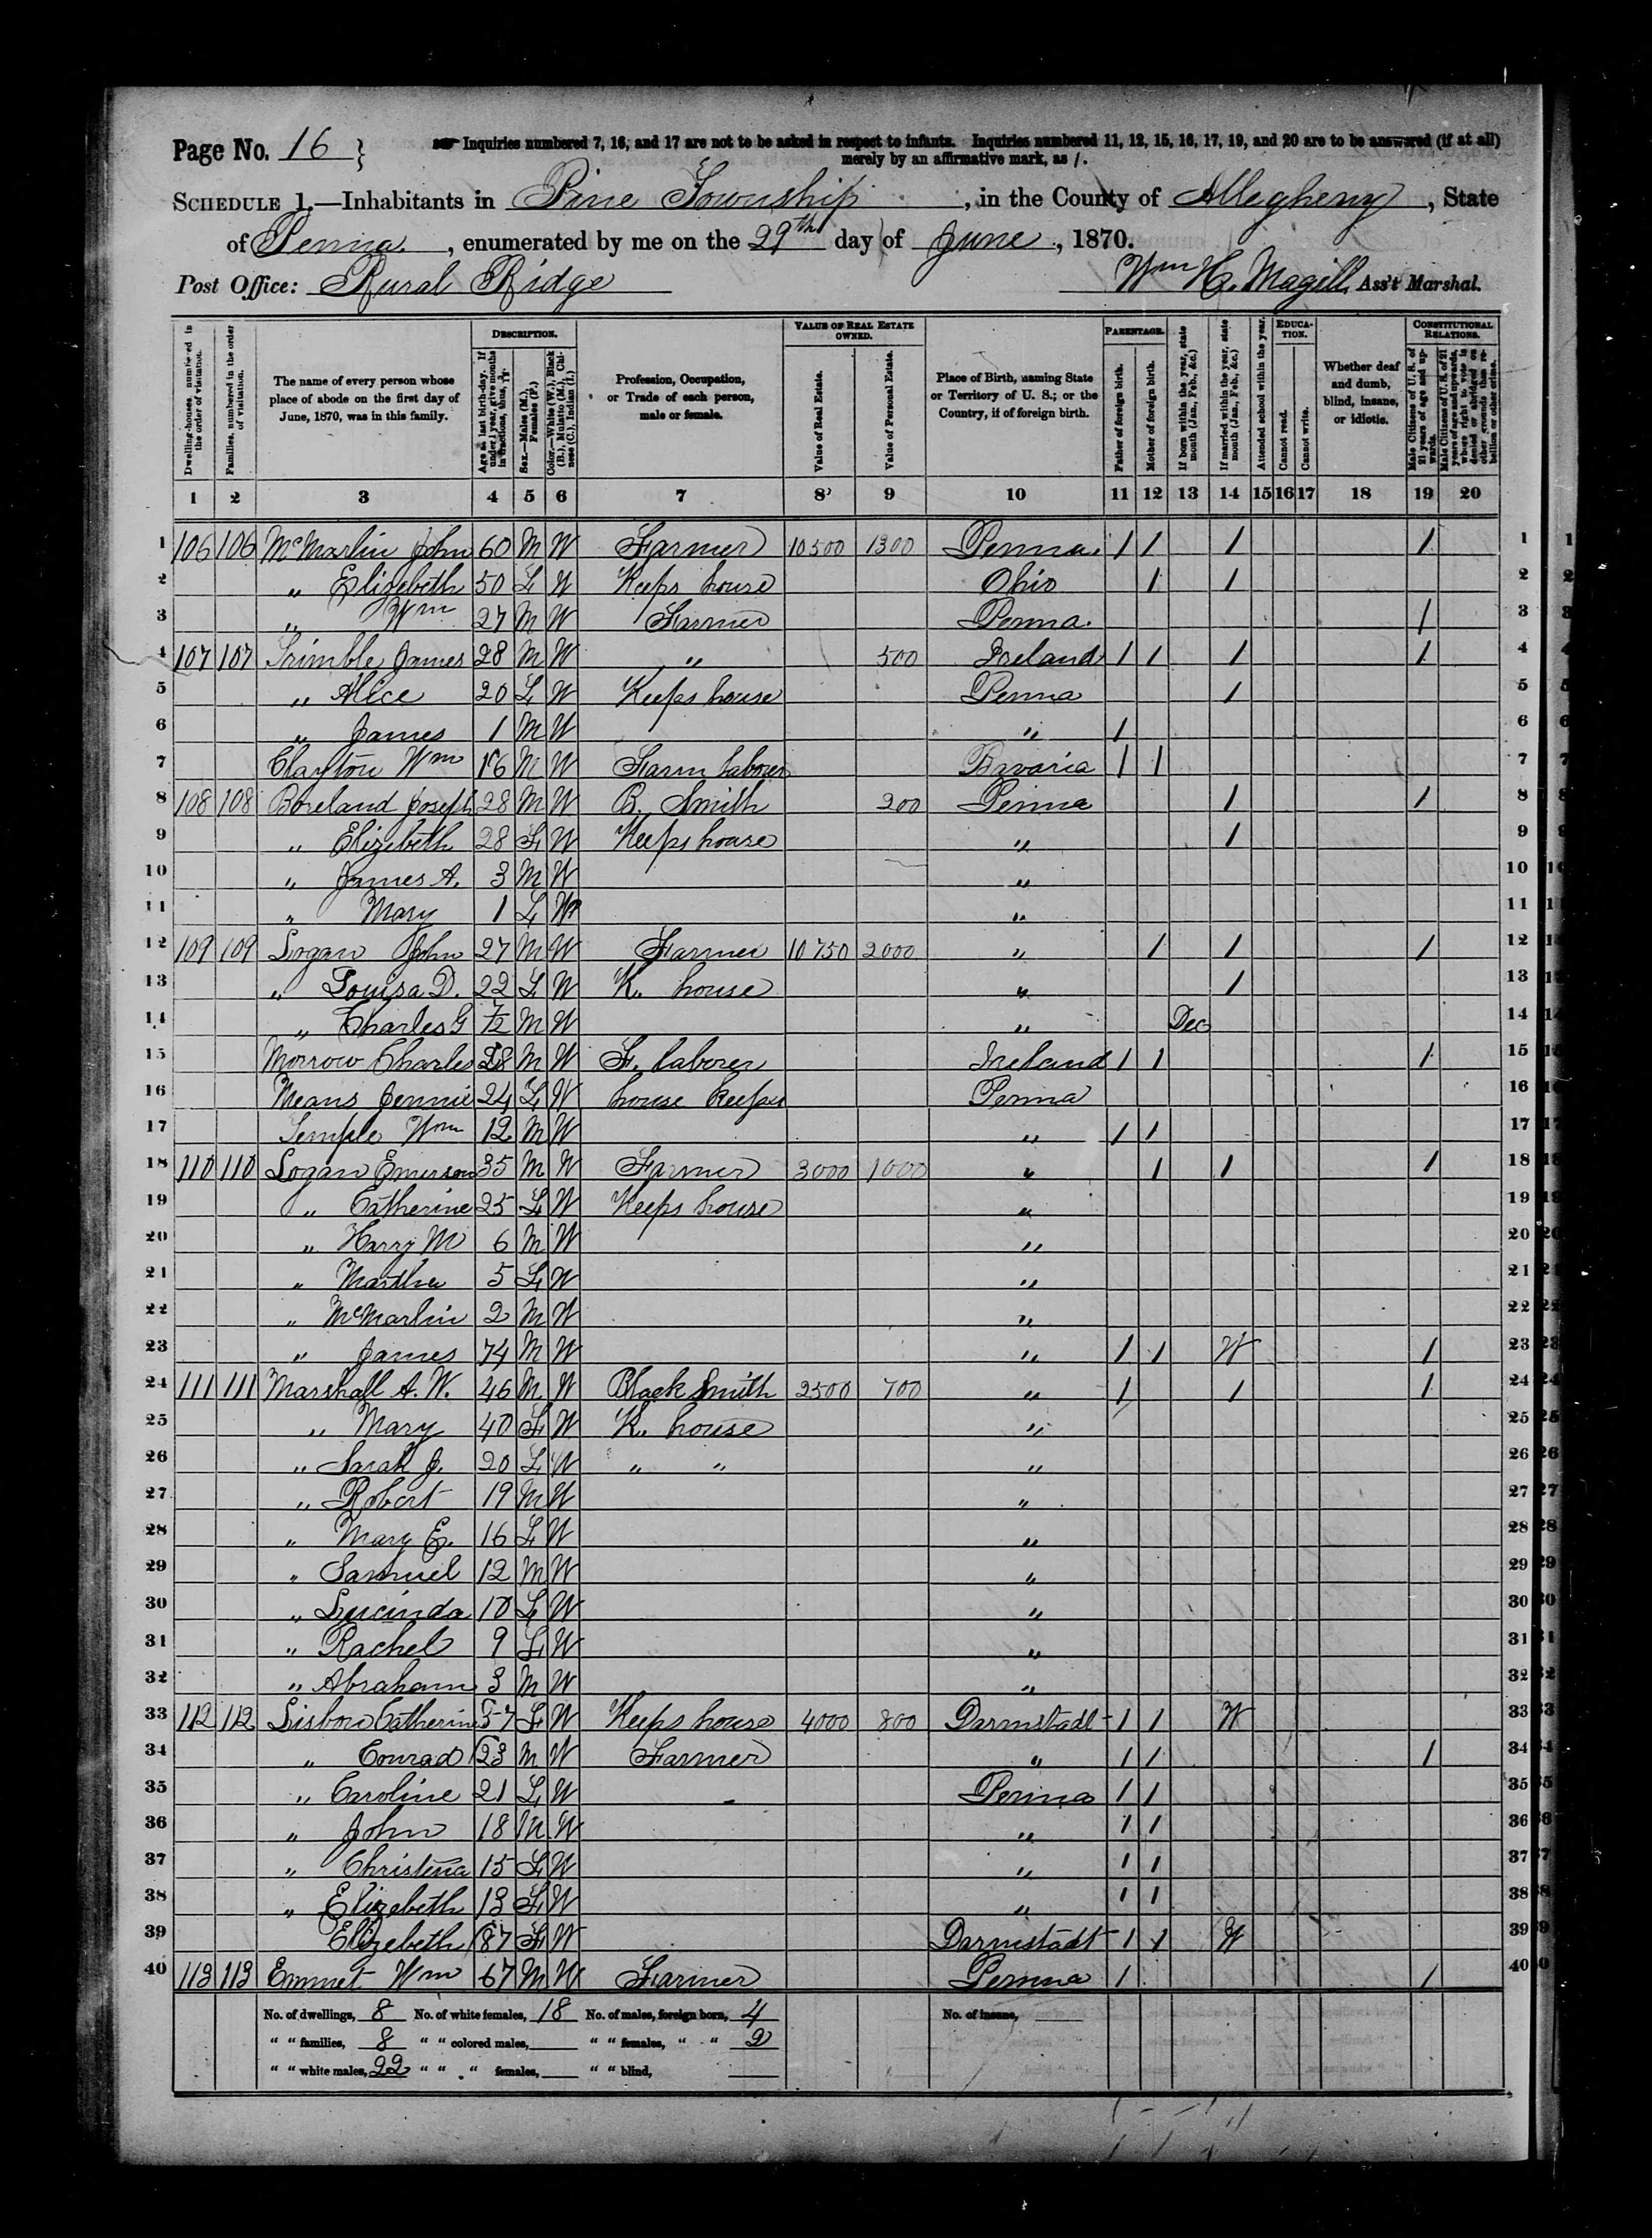 Page No. 16 } Inquiries numbered 7, 16, and 17 are not to be asked in respect to infants. Inquiries numbered 11, 12, 15, 16, 17, 19, and 20 are to be answered (if at all)
merely by an affirmative mark, as /.
SCHEDULE 1.—Inhabitants in Pine Township, in the County of Allegheny, State
of Penna., enumerated by me on the 29th day of June, 1870.
Post Office: Rural Ridge Wm H. Magill, Ass't Marshal.
Dwelling-houses, numbered in the order of visitation.
Families, numbered in the order of visitation.
The name of every person whose place of abode on the first day of June, 1870, was in this family.
DESCRIPTION.
Age at last birth-day. If under 1 year, give months in fractions, thus, 3/12.
Sex.—Males (M.), Females (F.)
Color.—White (W.), Black (B.), Mulatto (M.), Chinese (C.), Indian (I.)
Profession, Occupation, or Trade of each person, male or female.
VALUE OF REAL ESTATE OWNED.
Value of Real Estate.
Value of Personal Estate.
Place of Birth, naming State or Territory of U. S.; or the Country, if of foreign birth.
PARENTAGE.
Father of foreign birth.
Mother of foreign birth.
If born within the year, state month (Jan., Feb., &c.)
If married within the year, state month (Jan., Feb., &c.)
Attended school within the year.
EDUCATION.
Cannot read.
Cannot write.
Whether deaf and dumb, blind, insane, or idiotic.
CONSTITUTIONAL RELATIONS.
Male Citizens of U. S. of 21 years of age and upwards.
Male Citizens of U. S. of 21 years of age and upwards, whose right to vote is denied or abridged on other grounds than rebellion or other crime.
1 2 3 4 5 6 7 8 9 10 11 12 13 14 15 16 17 18 19 20
1 106 106 McMarlin John 60 M W Farmer 10500 1300 Penna. / / / / 1
2 " Elizebeth 50 F W Keeps house Ohio / / 2
3 " Wm 27 M W Farmer Penna. / 3
4 107 107 Trimble James 28 M W " 500 Ireland / / / / 4
5 " Alice 20 F W Keeps house Penna / 5
6 " James 1 M W " / 6
7 Clayton Wm 16 M W Farm laborer Bavaria / / 7
8 108 108 Boreland Joseph 28 M W B. Smith 200 Penna / / 8
9 " Elizebeth 28 F W Keeps house " / 9
10 " James A. 3 M W " 10
11 " Mary 1 F W " 11
12 109 109 Logan John 27 M W Farmer 10750 2000 " / / / 12
13 " Louisa D. 22 F W K. house " / 13
14 " Charles G M W " Dec 14
15 Morrow Charles 28 M W F. laborer Ireland / / / 15
16 Means Jennie 24 F W house keeper Penna 16
17 Temple Wm 12 M W " / / 17
18 110 110 Logan Emerson 35 M W Farmer 3000 1000 " / / / 18
19 " Catherine 25 F W Keeps house " 19
20 " Harry M 6 M W " 20
21 " Martha 5 F W " 21
22 " McMarlin 2 M W " 22
23 " James 74 M W " / / W / 23
24 111 111 Marshall A. W. 46 M W Black Smith 2500 700 " / / / 24
25 " Mary 40 F W K. house " 25
26 " Sarah J. 20 F W " " " 26
27 " Robert 19 M W " 27
28 " Mary E. 16 F W " 28
29 " Samuel 12 M W " 29
30 " Lucinda 10 F W " 30
31 " Rachel 9 F W " 31
32 " Abraham 3 M W " 32
33 112 112 Lisbow Catherine 57 F W Keeps house 4000 800 Darmstadt / / W 33
34 " Conrad 23 M W Farmer " / / / 34
35 " Caroline 21 F W Penna / / 35
36 " John 18 M W " / / 36
37 " Christena 15 F W " / / 37
38 " Elizebeth 13 F W " / / 38
39 Elizebeth 87 F W Darmstadt / / W 39
40 113 113 Emmet Wm 67 M W Farmer Penna / / 40
No. of dwellings, 8 No. of white females, 18 No. of males, foreign born, 4 No. of insane,
" " families, 8 " " colored males, " " females, " " 2
" " white males, 22 " " " females, " " blind,